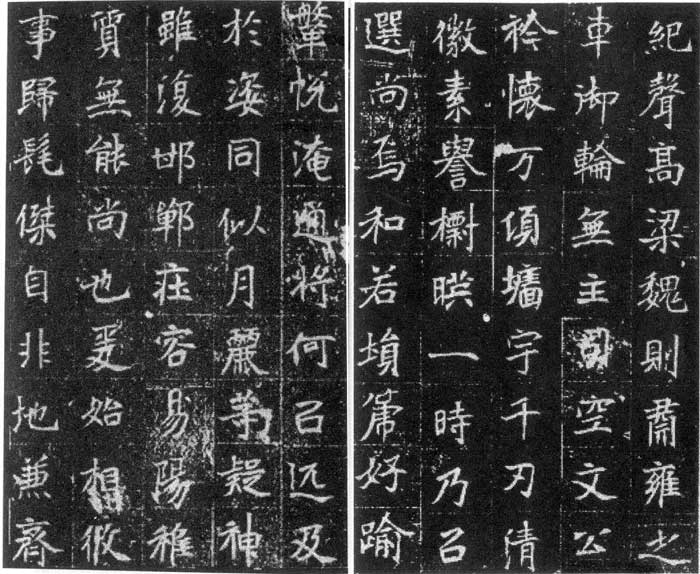 紀聲髙梁魏則肅雍之
車御輪無主司空文公
衿懷万傾墻宇千刃清
徽素譽檦暎一時乃㠯
選尚焉和若塤篪好踰
鞶帨淹通將何㠯及
於姿同似月麗苐疑神
雖復邯鄲庄容易陽稚
質無能尚也爰始相攸
事歸髦傑自非地兼齊